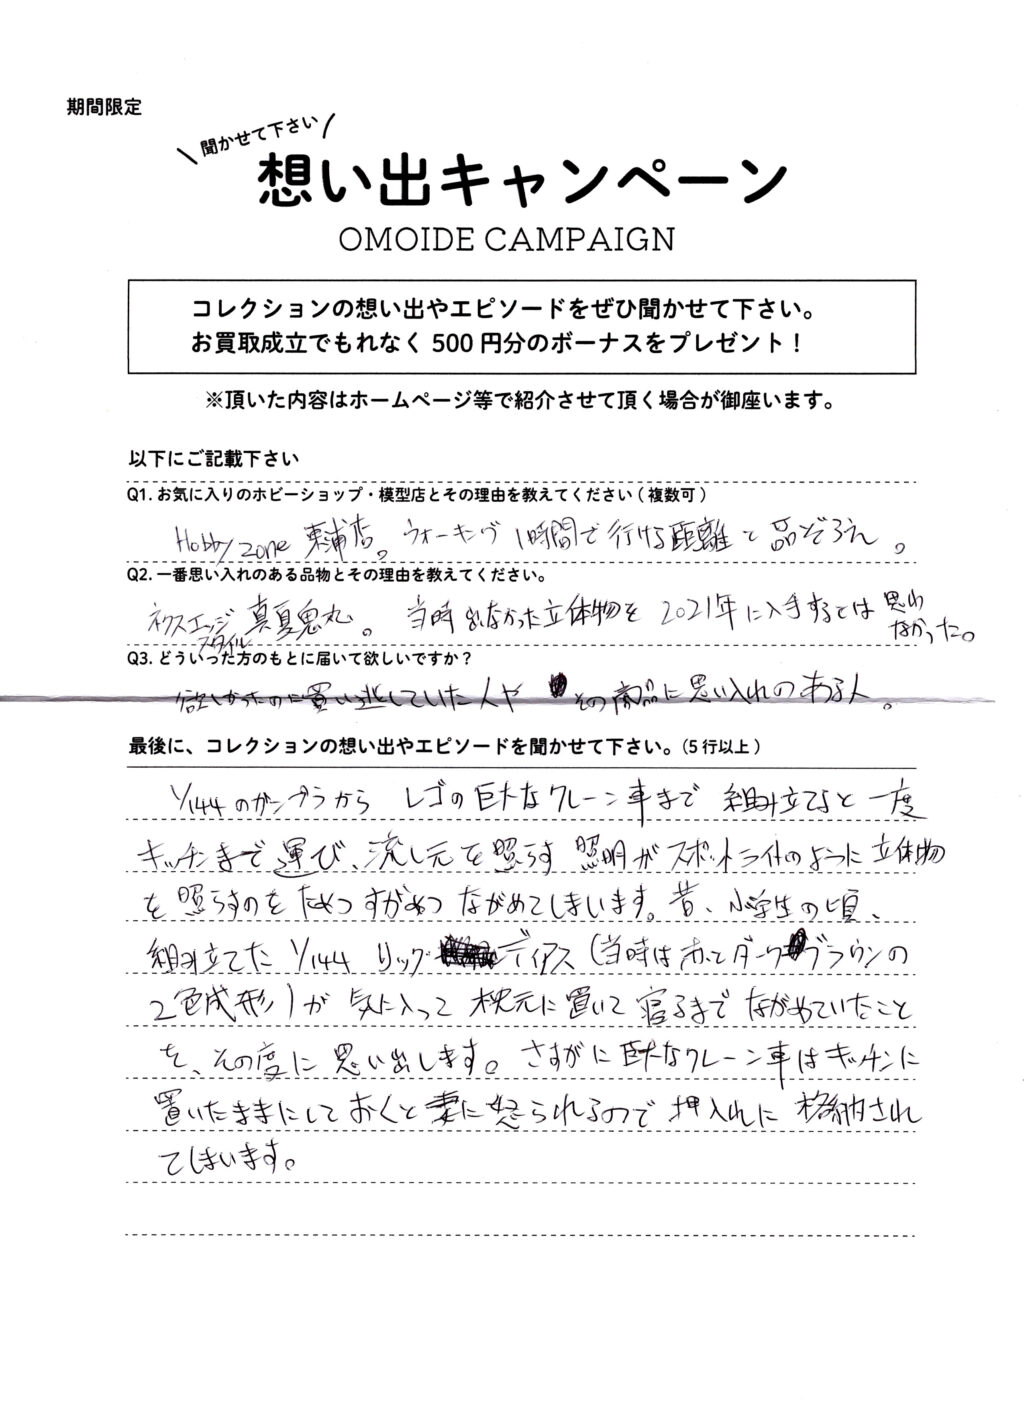 期間限定
聞かせて下さい
想い出キャンペーン
OMOIDE CAMPAIGN
コレクションの想い出やエピソードをぜひ聞かせて下さい。
お買取成立でもれなく 500 円分のボーナスをプレゼント！
※頂いた内容はホームページ等で紹介させて頂く場合が御座います。
以下にご記載下さい
Q1. お気に入りのホビーショップ・模型店とその理由を教えてください ( 複数可 )
Hobby zone 東浦店。ウォーキング 1時間で行ける距離と品ぞろえ。
Q2. 一番思い入れのある品物とその理由を教えてください。
ネクスエッジスタイル 真夏鬼丸。 当時出なかった立体物を 2021年に入手するとは 思わなかった。
Q3. どういった方のもとに届いて欲しいですか？
欲しかったのに買い逃していた人や その商品に思い入れのある人。
最後に、コレクションの想い出やエピソードを聞かせて下さい。(5 行以上 )
1/144のガンプラから レゴの巨大なクレーン車まで 組み立てると一度
キッチンまで運び、流し元を照らす 照明がスポットライトのように立体物
を照らすのをためつすがめつ ながめてしまいます。昔、小学生の頃、
組み立てた 1/144 リック ディアス (当時は赤とダークブラウンの
2色成形)が 気に入って枕元に置いて寝るまでながめていたこと
を、その度に思い出します。さすがに巨大なクレーン車はキッチンに
置いたままにしておくと妻に怒られるので押入れに格納され
てしまいます。